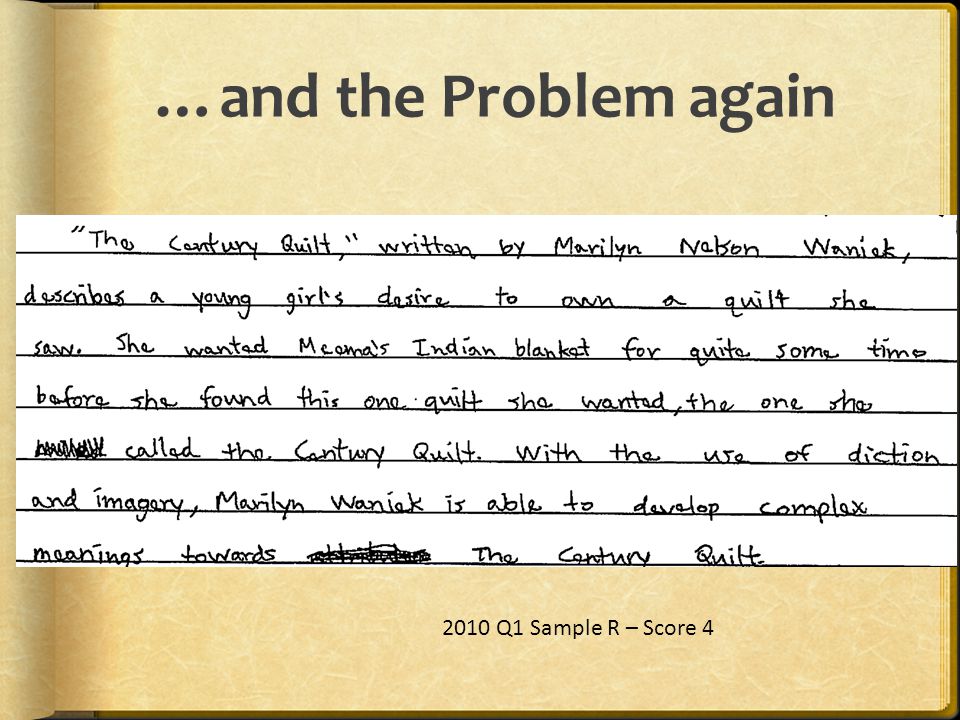 ...and the Problem again
"The Century Quilt," written by Marilyn Nelson Waniek,
describes a young girl's desire to own a quilt she
saw. She wanted Meema's Indian blanket for quite some time
before she found this one quilt she wanted, the one she
called the Century Quilt. With the use of diction
and imagery, Marilyn Waniek is able to develop complex
meanings towards The Century Quilt.
2010 Q1 Sample R – Score 4